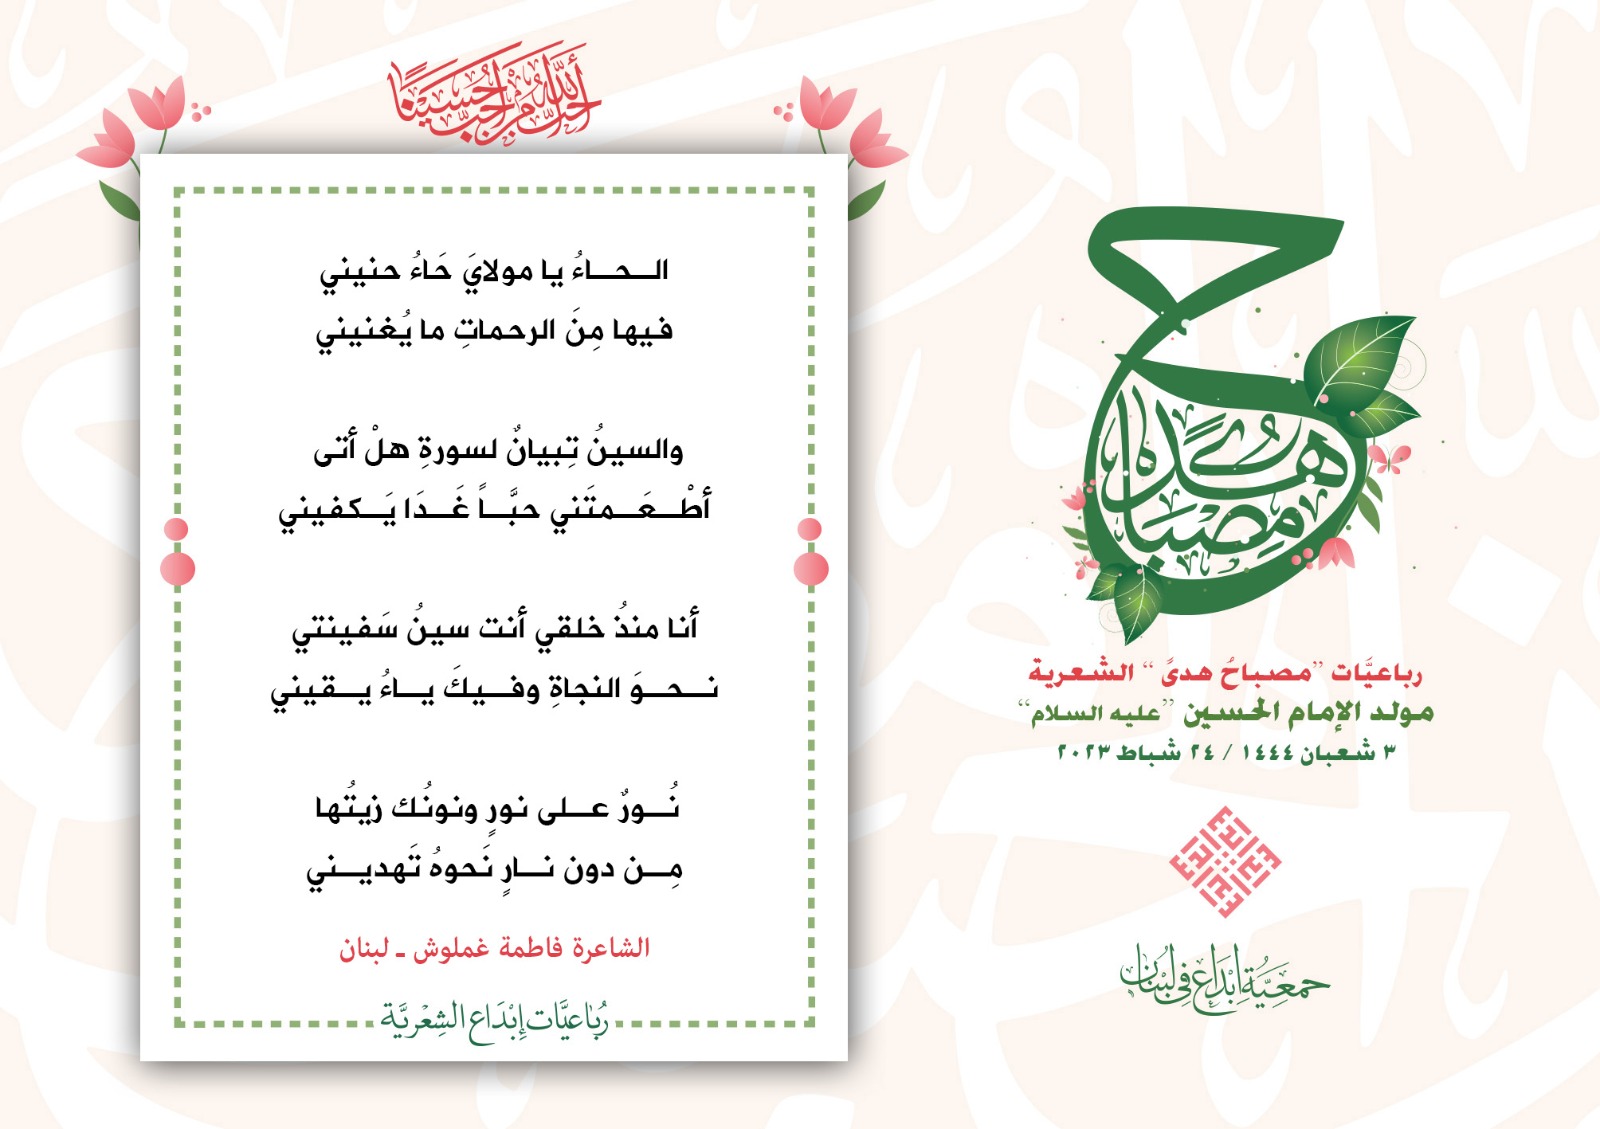 أحب الله من أحب حسينًا
الـــحـــاءُ يا مولايَ حَاءُ حنيني
فيها مِنَ الرحماتِ ما يُغنيني
والسينُ تِبيانٌ لسورةِ هلْ أتى
أطْـــعَـــمتَني حبَّـــاً غَـــدَا يَـــكفيني
أنا منذُ خلقي أنت سينُ سَفينتي
نـــحـــوَ النجاةِ وفـــيكَ يـــاءُ يـــقيني
نُـــورٌ عـــلى نورٍ ونونُك زيتُها
مِـــن دون نـــارٍ نَحوهُ تَهديـــني
الشاعرة فاطمة غملوش ـ لبنان
رُبَاعيَّات إبْدَاع الشِعْريَّة
مِصْبَاح هُدًى
رباعيَّات "مصباحُ هدىً" الشعرية
مولد الإمام الحسين "عليه السلام"
٣ شعبان ١٤٤٤ / ٢٤ شباط ٢٠٢٣
جمعيَّة إبْدَاع في لبْنان